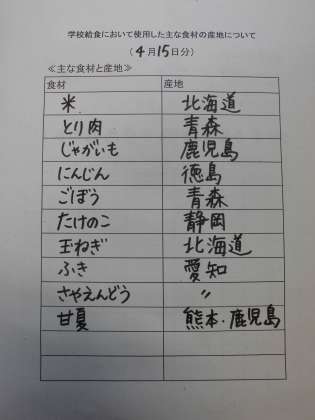 学校給食において使用した主な食材の産地について
(4月15日分)
≪主な食材と産地≫
食材 産地
米 北海道
とり肉 青森
じゃがいも 鹿児島
にんじん 徳島
ごぼう 青森
たけのこ 静岡
玉ねぎ 北海道
ふき 愛知
さやえんどう 〃
甘夏 熊本・鹿児島